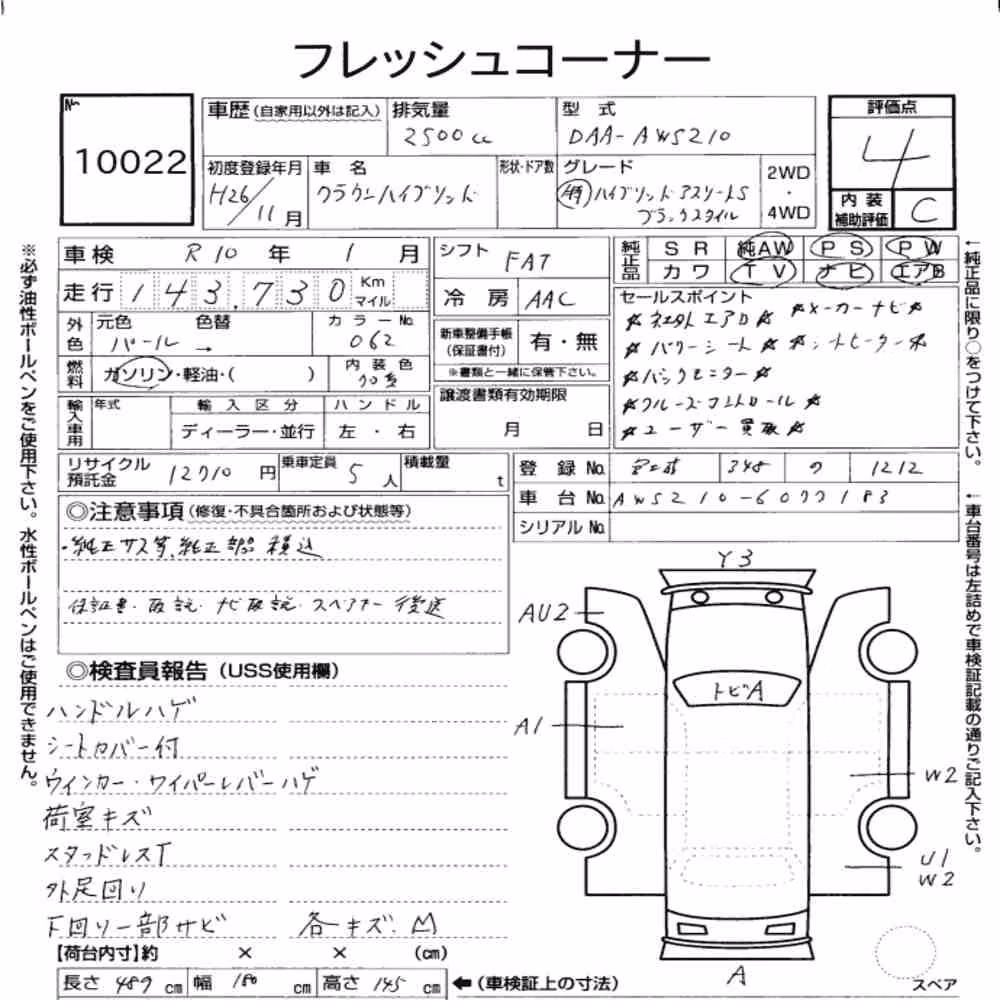 フレッシュコーナー
№
10022
車歴(自家用以外は記入)
排気量
2500cc
型 式
DAA-AWS210
評価点
4
初度登録年月
H26/11月
車 名
クラウンハイブリッド
形状・ドア数
グレード
ハイブリッドアスリートS
ブラックスタイル
2WD
・
4WD
内 装
補助評価
C
車 検 R10 年 1 月
シフト FAT
純正品
SR 純AW PS PW
カワ TV ナビ エアB
走行 143,730 Km
マイル
冷 房 AAC
セールスポイント
*社外エアロ* *メーカーナビ*
*パワーシート* *シートヒーター*
*バックモニター*
*クルーズコントロール*
*ユーザー買取*
外色
元色 色替
パール →
カラーNo.
062
新車整備手帳
(保証書付)
有・無
※書類と一緒に保管下さい。
燃料
ガソリン・軽油・( )
内 装 色
クロ系
譲渡書類有効期限
月 日
輸入車用
年式
輸 入 区 分
ディーラー・並行
ハ ン ド ル
左 ・ 右
リサイクル
預託金
12710 円
乗車定員 5 人
積載量 t
登 録 No. 348 1212
車 台 No. AWS210-6077183
シリアル No.
◎注意事項(修復・不具合箇所および状態等)
・純正サス等、純正部品 積込
保証書・取説・ナビ取説・スペアキー 後送
◎検査員報告(USS使用欄)
ハンドルハゲ
シートカバー付
ウィンカー・ワイパーレバーハゲ
荷室キズ
スタッドレスT
外足回り
下回り一部サビ 各キズ、凹
Y3
AU2
トビA
A1
W2
U1
W2
A
スペア
【荷台内寸】約 × × (cm)
長さ 489 cm 幅 180 cm 高さ 145 cm ←(車検証上の寸法)
※必ず油性ボールペンをご使用下さい。水性ボールペンはご使用できません。
←純正品に限り○をつけて下さい。
←車台番号は左詰めで車検証記載の通りご記入下さい。